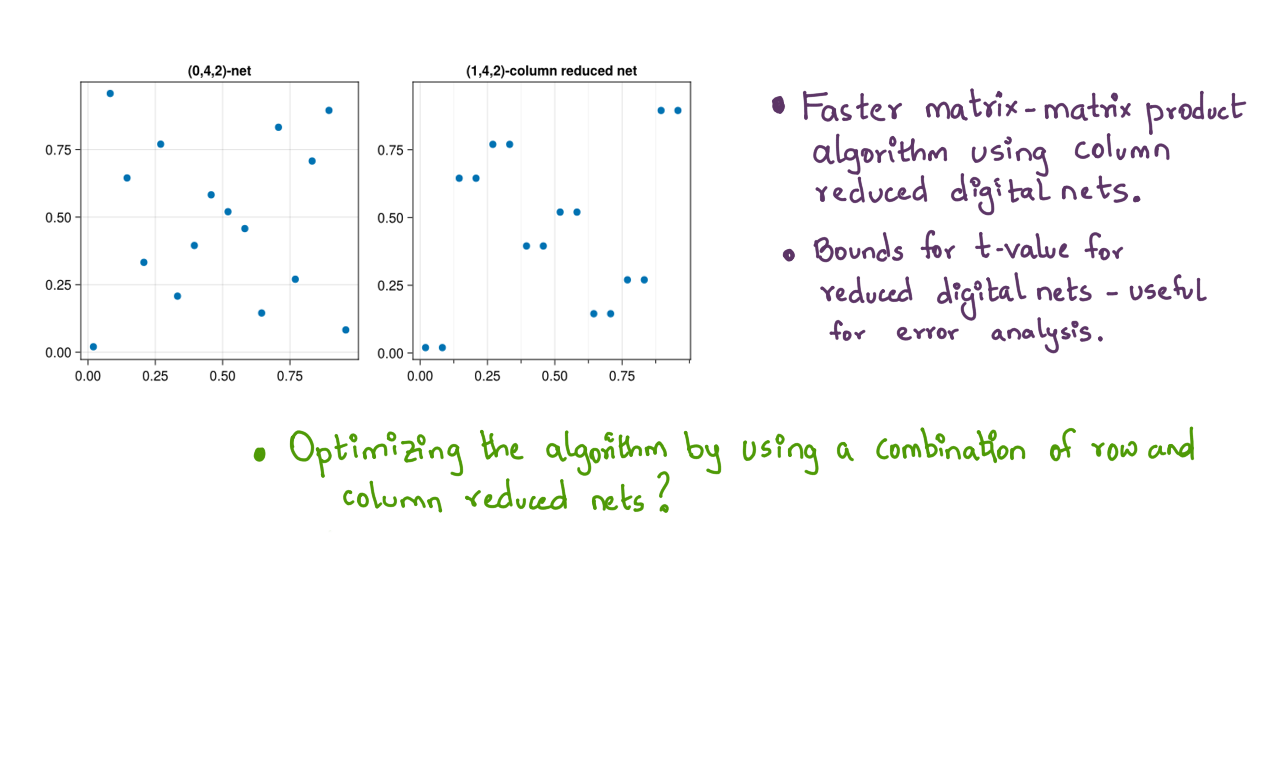 (0,4,2)-net
0.75
0.50
0.25
0.00
0.00 0.25 0.50 0.75
(1,4,2)-column reduced net
0.75
0.50
0.25
0.00
0.00 0.25 0.50 0.75
• Faster matrix-matrix product
algorithm using column
reduced digital nets.
• Bounds for t-value for
reduced digital nets - useful
for error analysis.
• Optimizing the algorithm by using a combination of row and
column reduced nets?